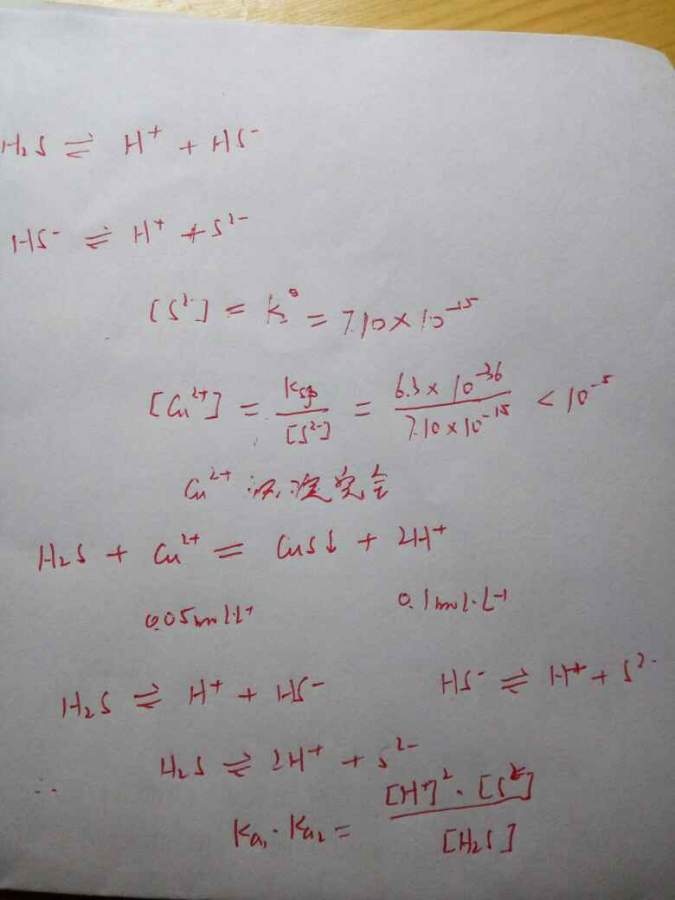 H₂S ⇌ H⁺ + HS⁻
HS⁻ ⇌ H⁺ + S²⁻
[S²⁻] = K° = 7.10×10⁻¹⁵
[Cu²⁺] = Ksp/[S²⁻] = 6.3×10⁻³⁶/7.10×10⁻¹⁵ < 10⁻⁵
Cu²⁺ 沉淀完全
H₂S + Cu²⁺ = CuS↓ + 2H⁺
0.05mol·L⁻¹ 0.1mol·L⁻¹
H₂S ⇌ H⁺ + HS⁻ HS⁻ ⇌ H⁺ + S²⁻
H₂S ⇌ 2H⁺ + S²⁻
∴ Ka₁·Ka₂ = [H⁺]²·[S²⁻]/[H₂S]